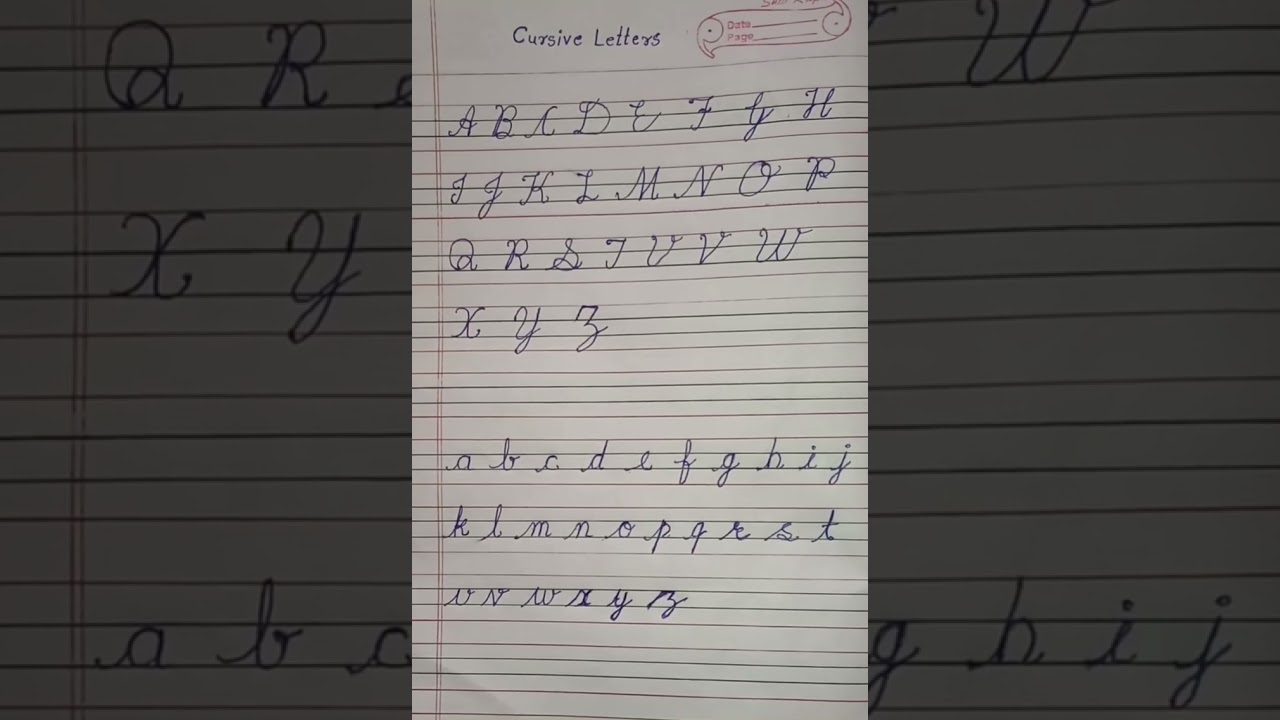 Cursive Letters
Date
Page
A B C D E F G H
I J K L M N O P
Q R S T U V W
X Y Z
a b c d e f g h i j
k l m n o p q r s t
u v w x y z